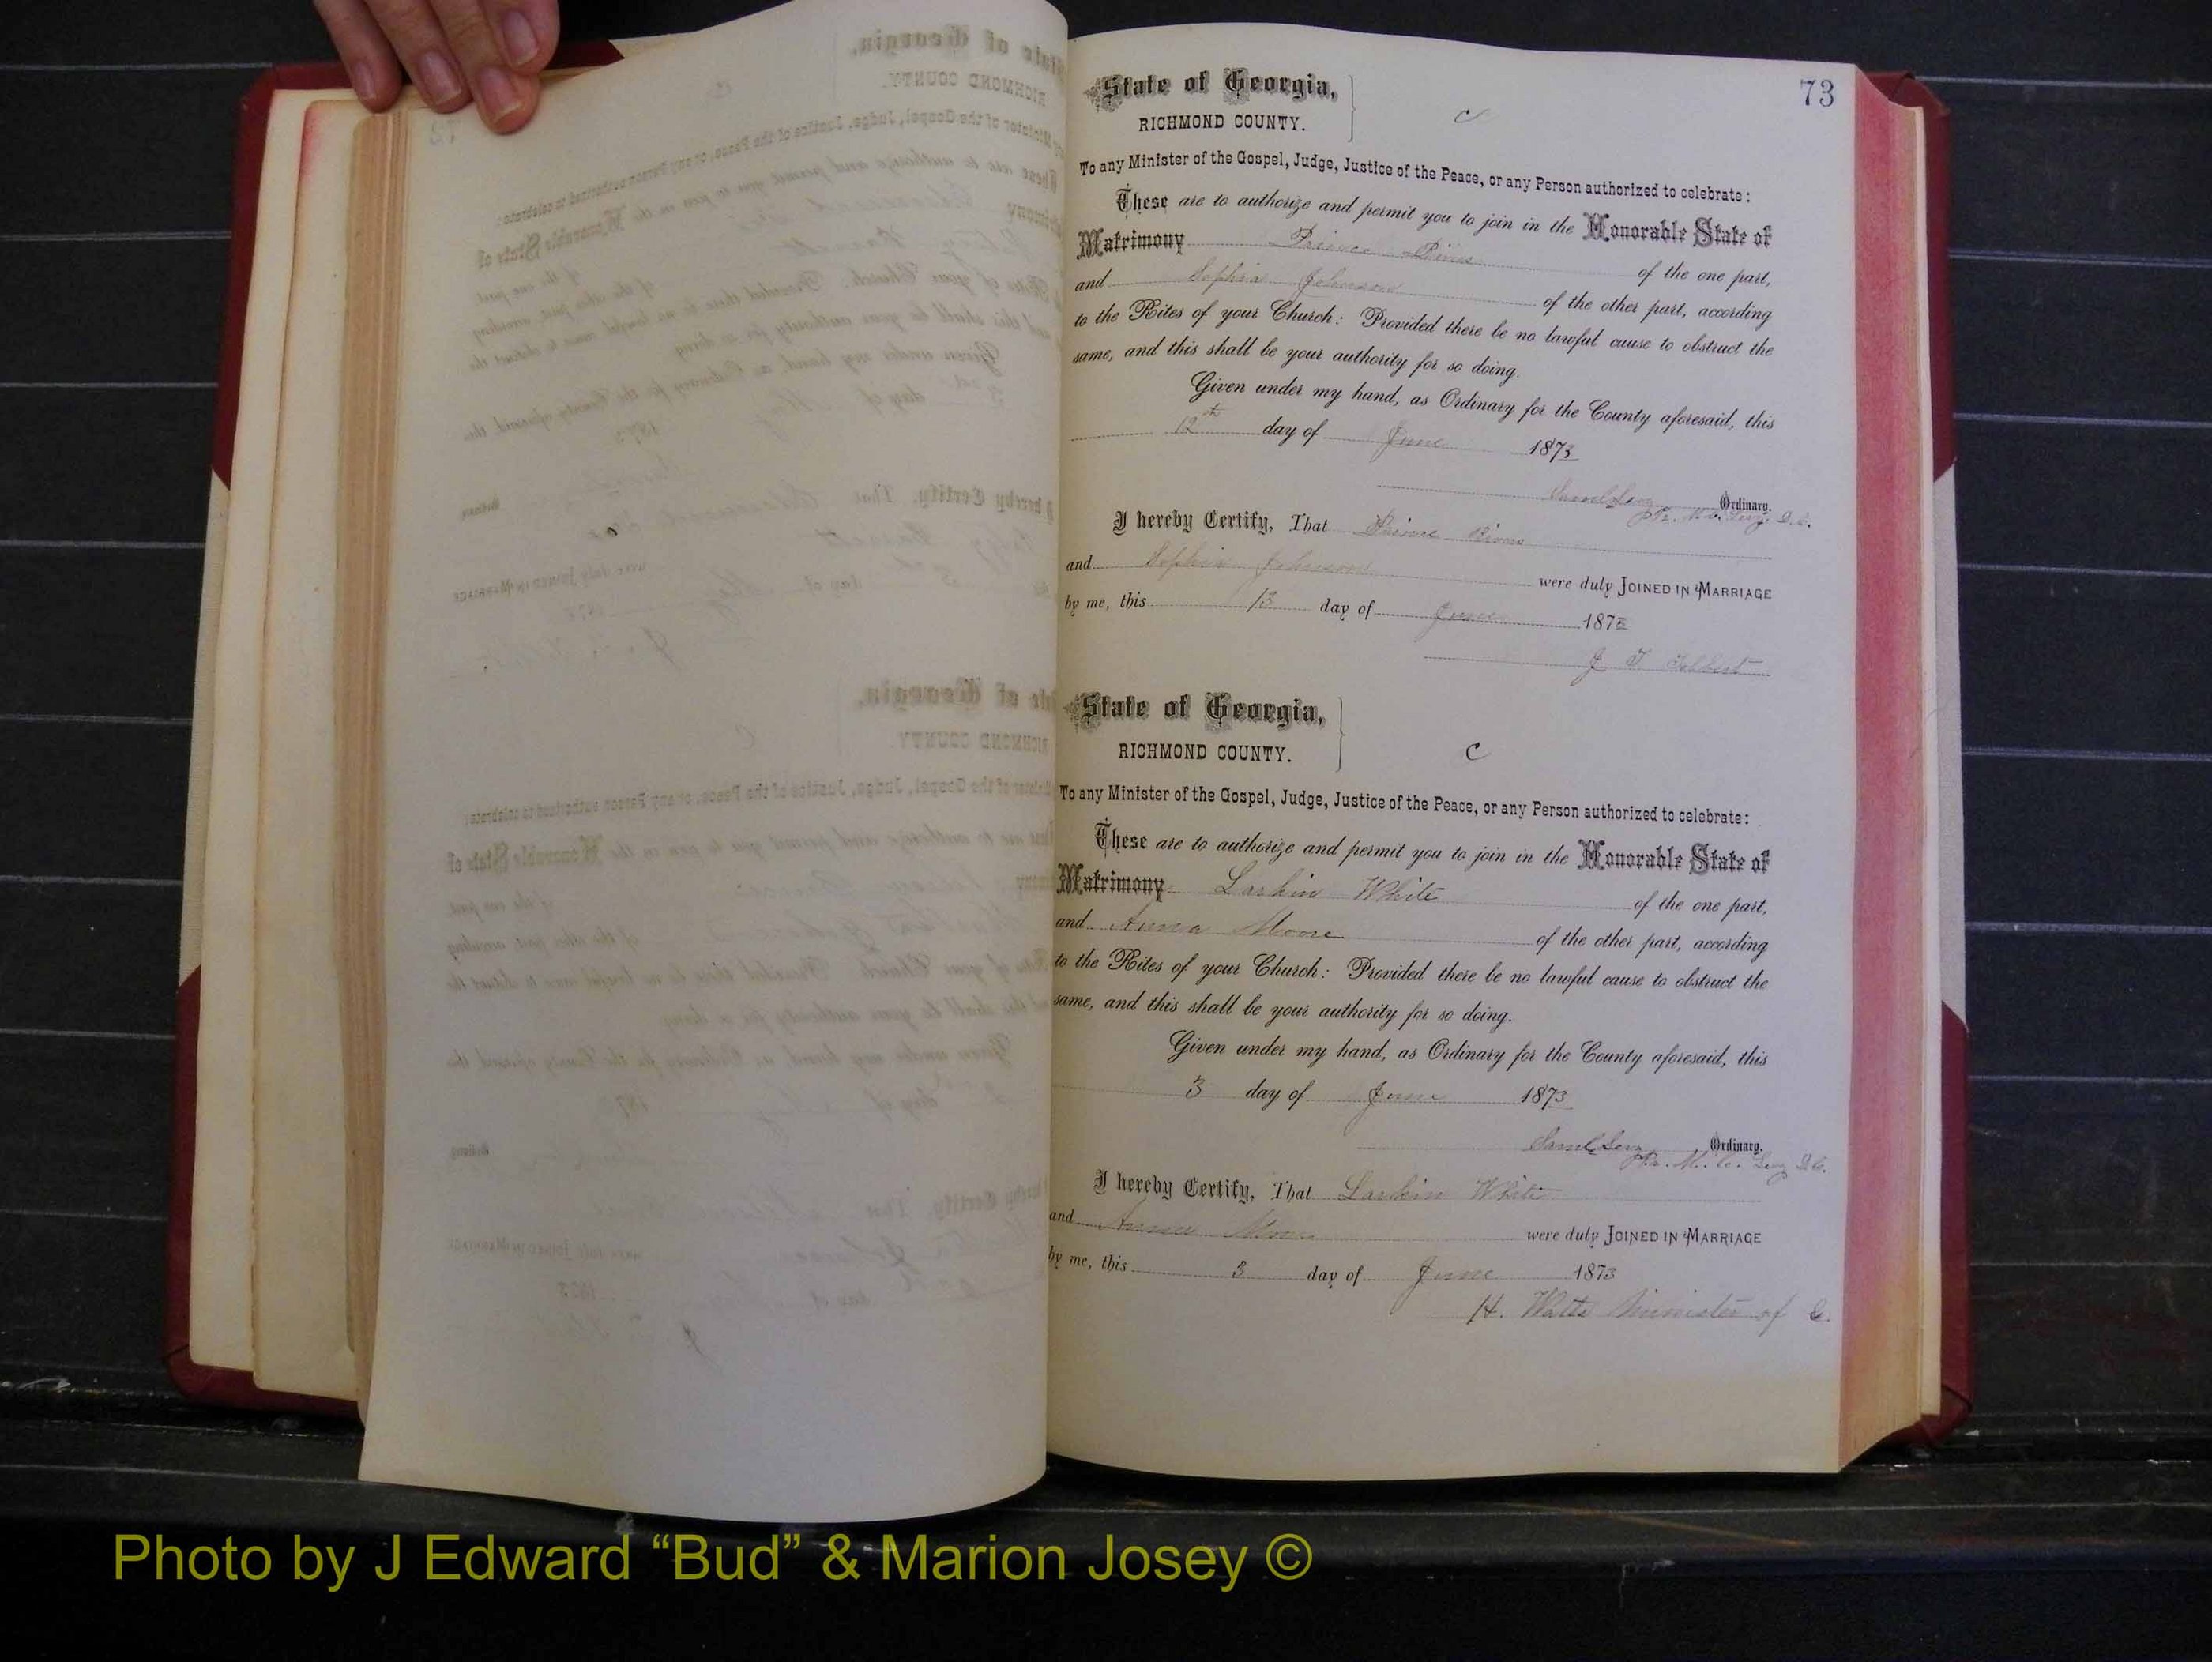 73
State of Georgia,
RICHMOND COUNTY.
C
To any Minister of the Gospel, Judge, Justice of the Peace, or any Person authorized to celebrate:
These are to authorize and permit you to join in the Honorable State of
Matrimony Prince Rivers
of the one part,
and Sophia Johnson
of the other part, according
to the Rites of your Church: Provided there be no lawful cause to obstruct the
same, and this shall be your authority for so doing.
Given under my hand, as Ordinary for the County aforesaid, this
12th day of June 1873
Saml Levy Ordinary.
Pr. M. C. Levy D.C.
I hereby Certify, That Prince Rivers
and Sophia Johnson
were duly JOINED IN MARRIAGE
by me, this 13 day of June 1873
J T Tolbert
State of Georgia,
RICHMOND COUNTY.
C
To any Minister of the Gospel, Judge, Justice of the Peace, or any Person authorized to celebrate:
These are to authorize and permit you to join in the Honorable State of
Matrimony Larkin White
of the one part,
and Anna Moore
of the other part, according
to the Rites of your Church: Provided there be no lawful cause to obstruct the
same, and this shall be your authority for so doing.
Given under my hand, as Ordinary for the County aforesaid, this
3 day of June 1873
Saml Levy Ordinary.
Pr. M. C. Levy D.C.
I hereby Certify, That Larkin White
and Anna Moore
were duly JOINED IN MARRIAGE
by me, this 3 day of June 1873
H. Watts Minister of G.
Photo by J Edward “Bud” & Marion Josey ©